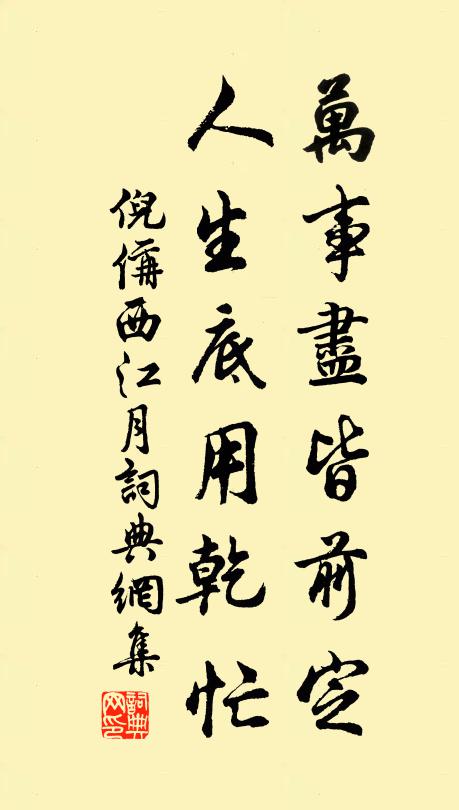 萬事盡皆前定
人生底用乾忙
倪偁西江月詞典網集
詞典网印